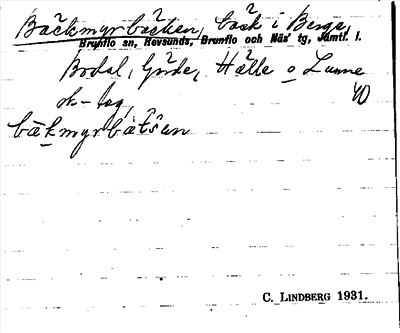 Bäckmyrbäcken, bäck i Berge,
Brunflo sn, Revsunds, Brunflo och Näs' tg, Jämtl. l.
Bodal, Gärde, Hälle o Lunne
40
bäkmyrbätsen
C. LINDBERG 1931.